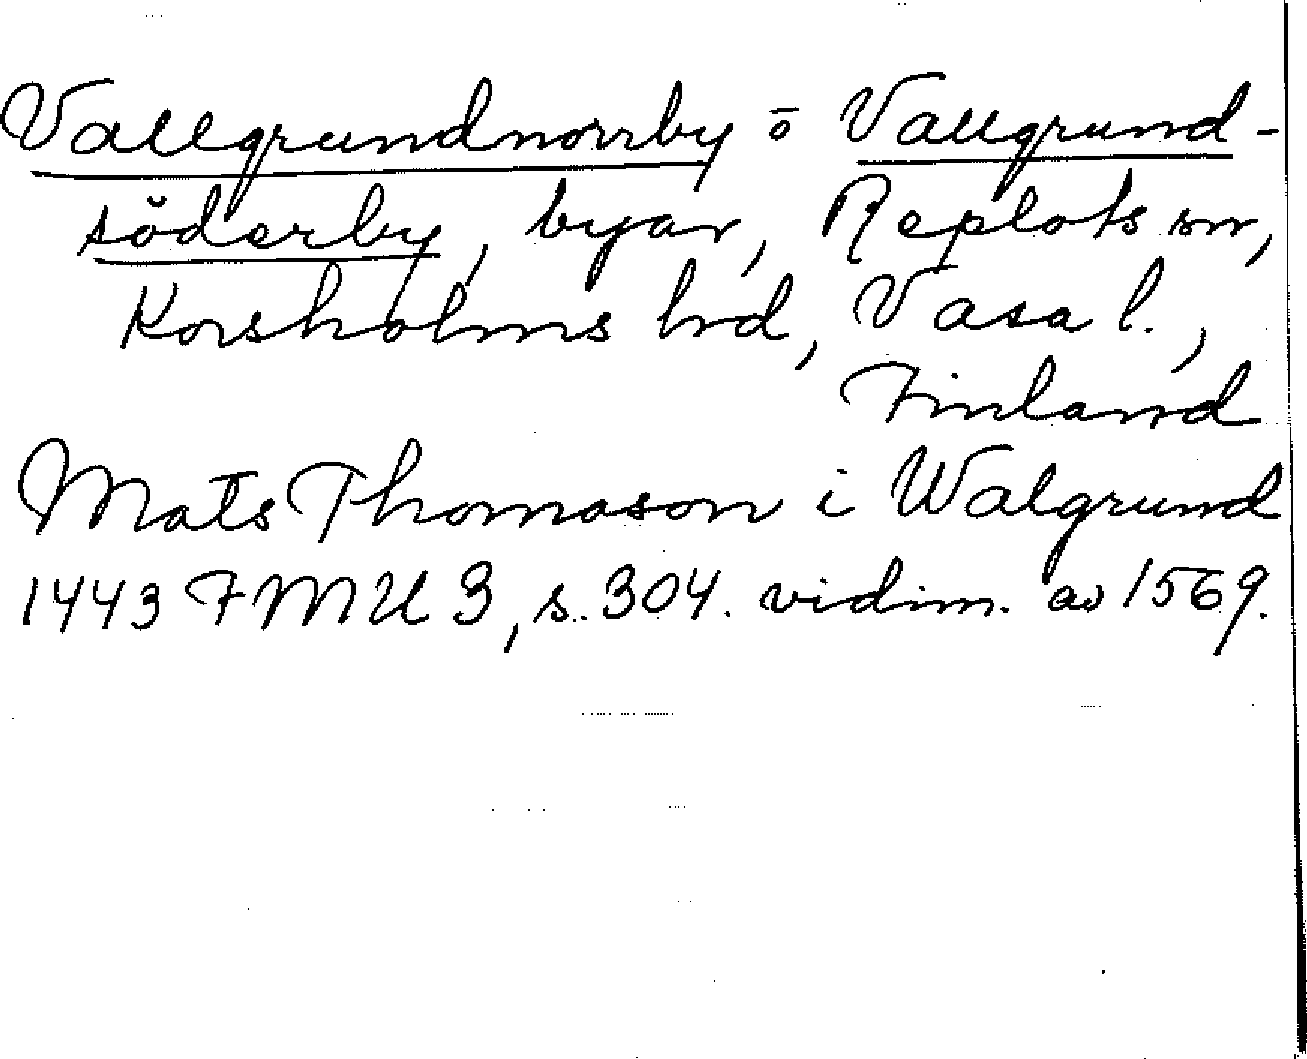 Vallgrundnorrby o Vallgrund-
söderby, byar, Replots sn,
Korsholms hrd, Vasa l.,
Finland
Mats Thomason i Walgrund
1443 FMU 3, s. 304. vidim. av 1569.